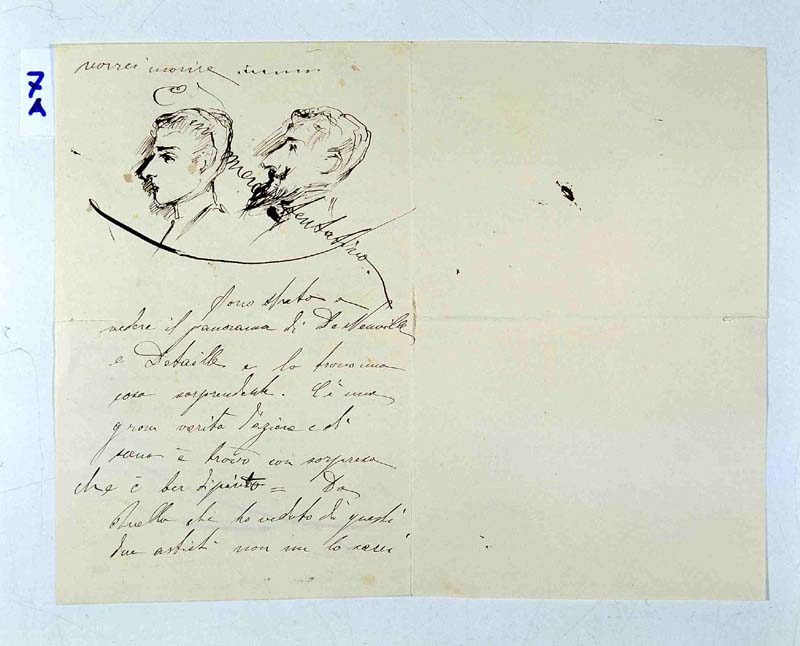 7
A
vorrei morire
mero tentativo.
Sono stato a
vedere il panorama di De Neuville
e Detaille e lo trovo una
cosa sorprendente. C'è una
gran verità d'azione e di
scena e trovo con sorpresa
che è ben dipinto = Da
quello che ho veduto di questi
due artisti non me lo sarei